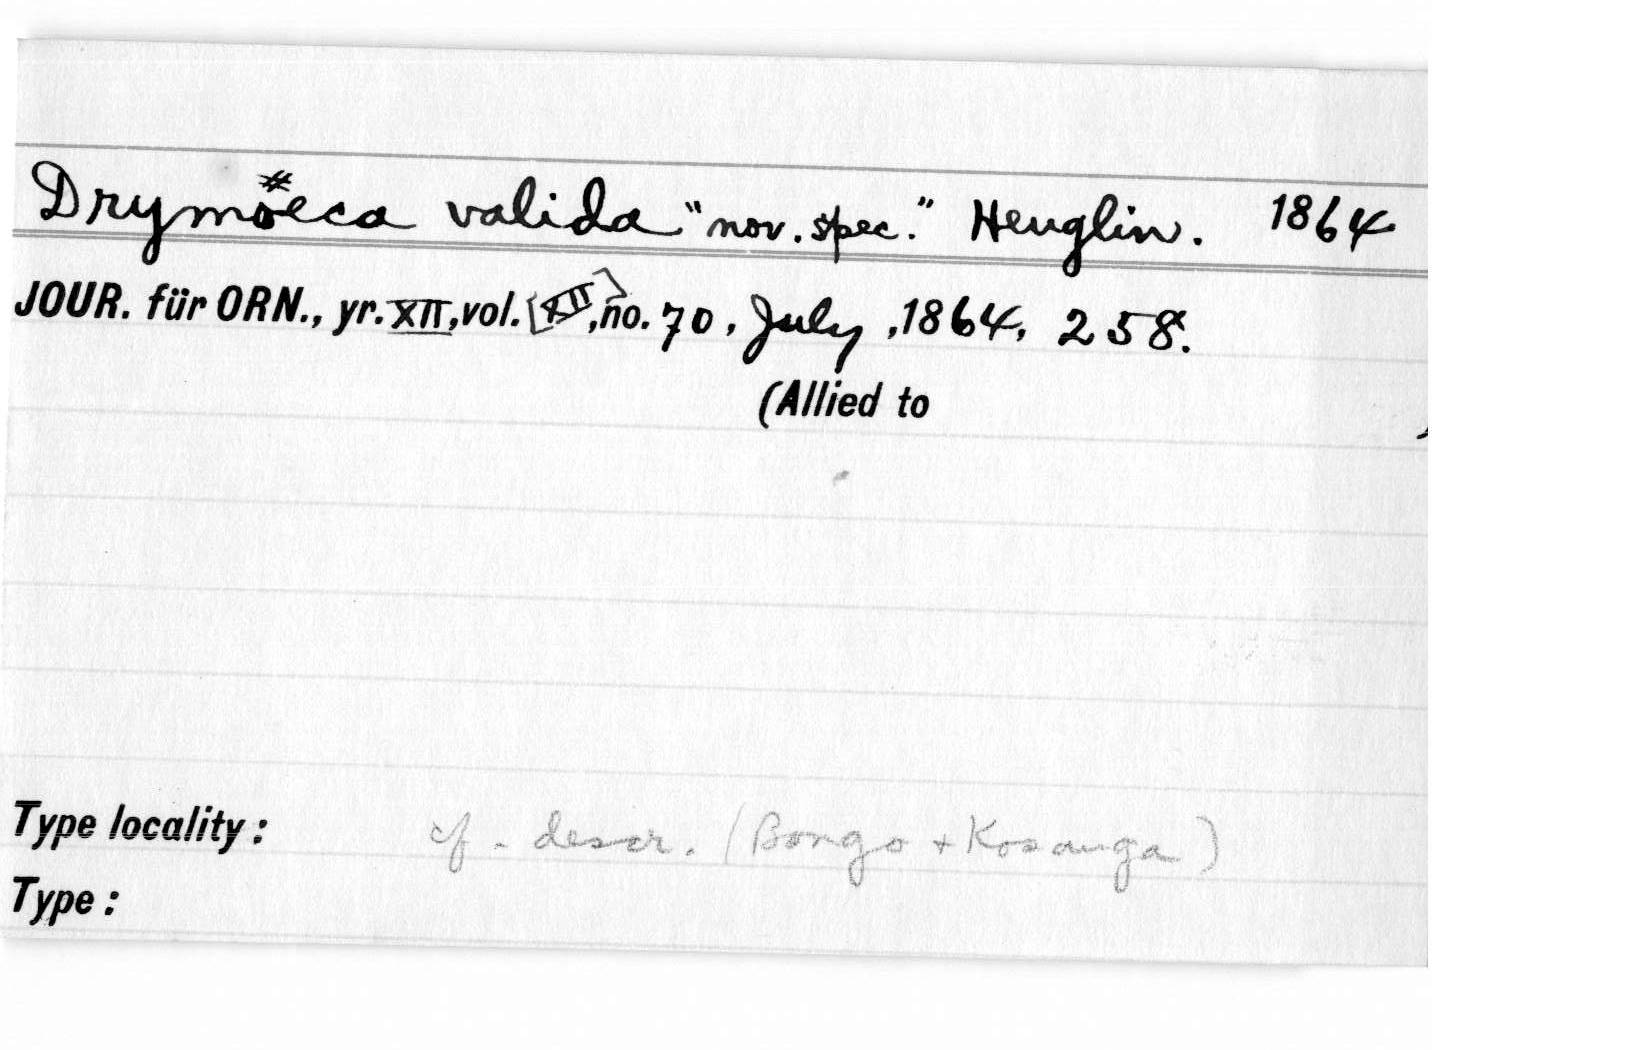 Drymoeca valida "nov. spec." Heuglin. 1864
JOUR. für ORN., yr. XII, vol. [XII], no. 70, July, 1864, 258.
(Allied to )
Type locality: cf. descr. (Bongo + Kosanga)
Type: